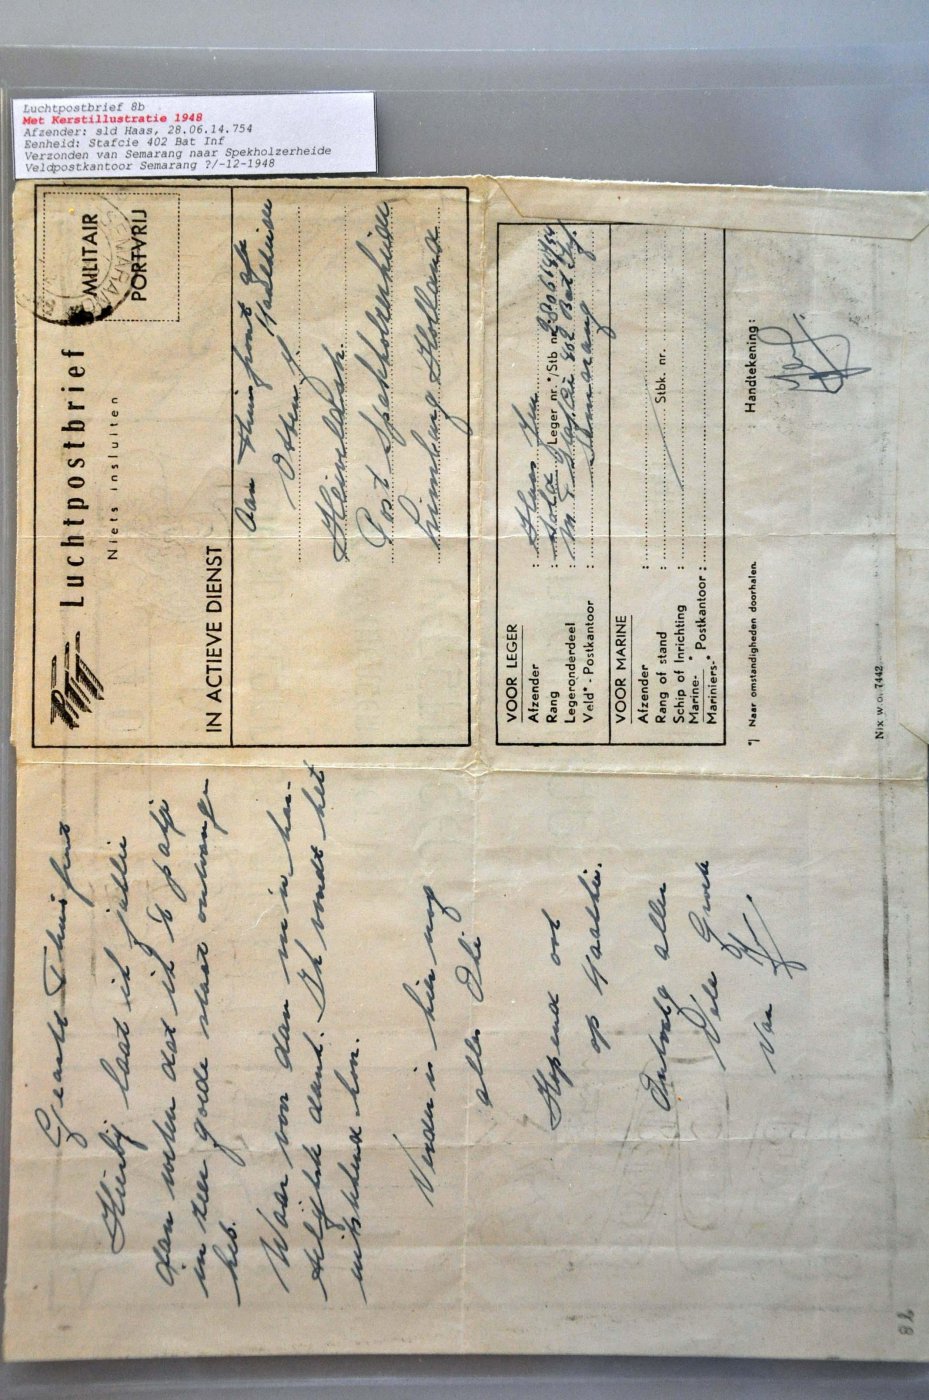 Luchtpostbrief 8b
Met Kerstillustratie 1948
Afzender: sld Haas, 28.06.14.754
Eenheid: Stafcie 402 Bat Inf
Verzonden van Semarang naar Spekholzerheide
Veldpostkantoor Semarang ?/-12-1948
PTT Luchtpostbrief
Niets insluiten
MILITAIR
PORTVRIJ
SEMARANG
IN ACTIEVE DIENST
Aan Thuisfront
Post Spekholzerheide
Limburg Holland
VOOR LEGER
Afzender : Haas
Rang : Sold Leger nr.*/Stb nr. 280614754
Legeronderdeel : 402 Bat Inf.
Veld* - Postkantoor : Semarang
VOOR MARINE
Afzender :
Rang of stand : Stbk. nr.
Schip of Inrichting :
Marine-* Postkantoor :
Mariniers-*
*) Naar omstandigheden doorhalen.
Handtekening:
Nix w.o. 7442
Geacht Thuisfront
Hierbij laat ik jullie
dan weten dat ik 't paktje
in zeer goede staat ontvangen
heb.
Waar voor dan mijn har-
telijke dank. Ik vondt het
uitstekend hoor.
Verder is hier nog
alles Oke
Hopend ook
op Kaalhei.
Ontvang allen
Vele Groete
van
8b